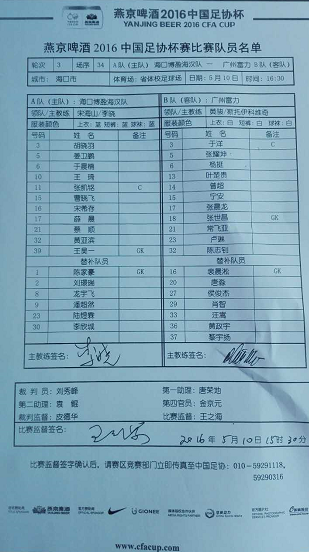 燕京啤酒2016中国足协杯
YANJING BEER 2016 CFA CUP
燕京啤酒 2016 中国足协杯赛比赛队员名单
轮次 3 场序 34 海口博盈海汉队 — 广州富力 B队（客队）
城市： 海口市 体育场：省体校足球场 日期：5月10日 时间：16:30
A队（主队）：海口博盈海汉队 B队（客队）：广州富力
领队/主教练 宋海山/李晓 领队/主教练 黄骏/斯托伊科维奇
服装颜色 上衣：蓝 短裤：蓝 球袜：蓝 服装颜色 上衣：白 短裤：白 球袜：白
号码 姓 名 备注 号码 姓 名 备注
3 胡晓羽 3 于洋 C
5 姜卫鹏 5 张耀坤
6 于晨楠 6 杨挺
10 王 琦 13 叶楚贵
11 张凯铭 C 14 曾超
15 曹晓飞 15 宁安
16 宋希存 17 张晨龙
17 薛 晨 18 张世昌 GK
21 蔡 顺 21 常飞亚
32 黄亚滨 23 卢琳
39 王昊一 GK 32 陈志钊
替补队员 替补队员
1 陈家豪 GK 16 裴晨淞 GK
2 刘璟瑞 20 唐淼
8 龙宇飞 27 侯俊杰
9 潘超然 29 肖智
23 陆煜霖 33 汪嵩
30 李欣城 36 黄政宇
37 黎宇扬
主教练签名： 主教练签名：
裁 判 员：刘秀峰 第一助理：唐荣池
第二助理：袁 鲲 第四官员：金京元
裁判监督：皮德华 比赛监督：王之海
比赛监督签名： 2016年 5月10日15时30分
比赛监督签字确认后，请赛区竞赛部门立即传真至中国足协：010－59291118、
59290316
www.cfacup.com